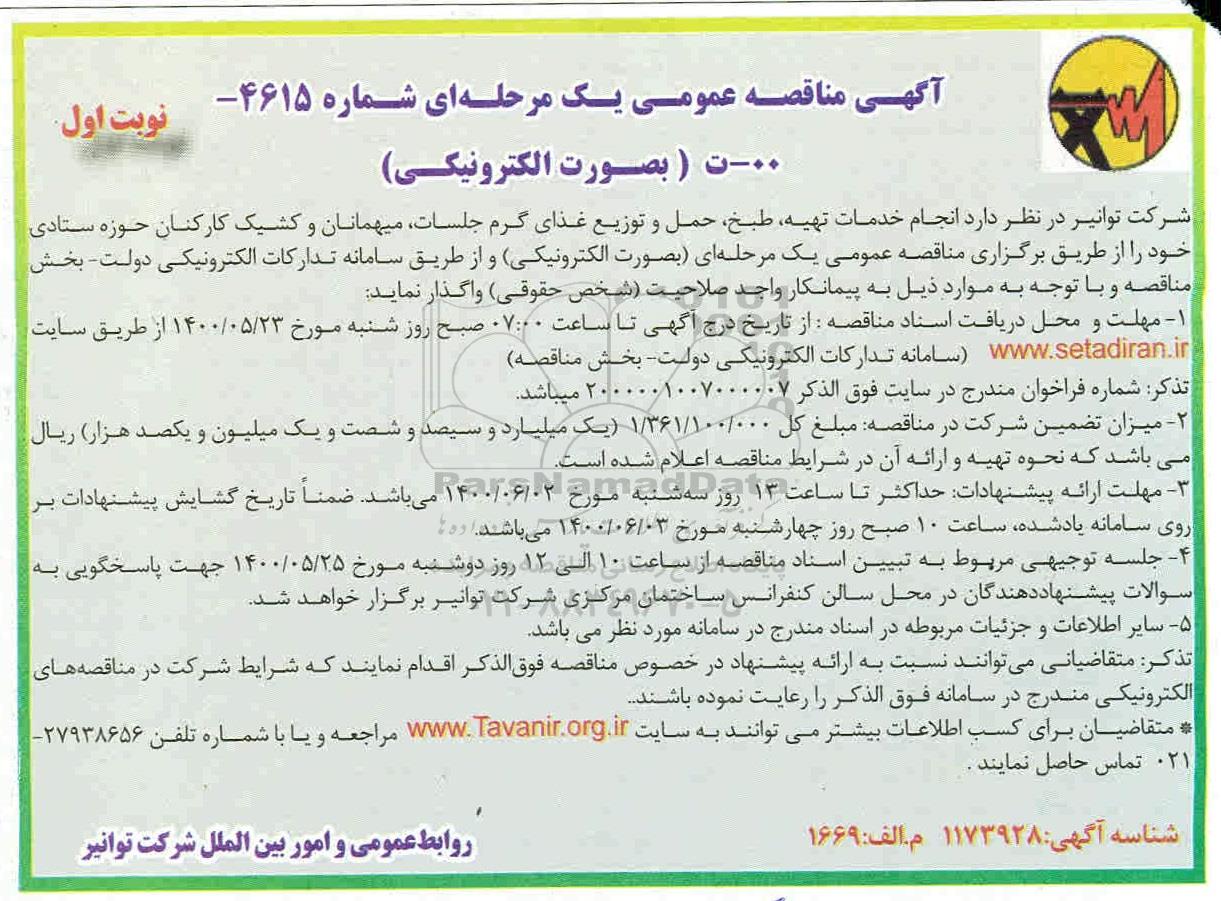 آگهی مناقصه عمومی یک مرحله‌ای شماره ۴۶۱۵-
نوبت اول
۰۰-ت ( بصورت الکترونیکی)
شرکت توانیر در نظر دارد انجام خدمات تهیه، طبخ، حمل و توزیع غذای گرم جلسات، میهمانان و کشیک کارکنان حوزه ستادی
خود را از طریق برگزاری مناقصه عمومی یک مرحله‌ای (بصورت الکترونیکی) و از طریق سامانه تدارکات الکترونیکی دولت- بخش
مناقصه و با توجه به موارد ذیل به پیمانکار واجد صلاحیت (شخص حقوقی) واگذار نماید:
۱- مهلت و محل دریافت اسناد مناقصه : از تاریخ درج آگهی تا ساعت ۰۷:۰۰ صبح روز شنبه مورخ ۱۴۰۰/۰۵/۲۳ از طریق سایت
www.setadiran.ir (سامانه تدارکات الکترونیکی دولت- بخش مناقصه)
تذکر: شماره فراخوان مندرج در سایت فوق الذکر ۲۰۰۰۰۰۱۰۰۷۰۰۰۰۰۷ میباشد.
۲- میزان تضمین شرکت در مناقصه: مبلغ کل ۱/۳۶۱/۱۰۰/۰۰۰ (یک میلیارد و سیصد و شصت و یک میلیون و یکصد هزار) ریال
می باشد که نحوه تهیه و ارائه آن در شرایط مناقصه اعلام شده است.
۳- مهلت ارائه پیشنهادات: حداکثر تا ساعت ۱۳ روز سه‌شنبه مورخ ۱۴۰۰/۰۶/۰۲ می‌باشد. ضمناً تاریخ گشایش پیشنهادات بر
روی سامانه یادشده، ساعت ۱۰ صبح روز چهارشنبه مورخ ۱۴۰۰/۰۶/۰۳ می‌باشد.
۴- جلسه توجیهی مربوط به تبیین اسناد مناقصه از ساعت ۱۰ الی ۱۲ روز دوشنبه مورخ ۱۴۰۰/۰۵/۲۵ جهت پاسخگویی به
سوالات پیشنهاددهندگان در محل سالن کنفرانس ساختمان مرکزی شرکت توانیر برگزار خواهد شد.
۵- سایر اطلاعات و جزئیات مربوطه در اسناد مندرج در سامانه مورد نظر می باشد.
تذکر: متقاضیانی می‌توانند نسبت به ارائه پیشنهاد در خصوص مناقصه فوق‌الذکر اقدام نمایند که شرایط شرکت در مناقصه‌های
الکترونیکی مندرج در سامانه فوق الذکر را رعایت نموده باشند..
* متقاضیان برای کسب اطلاعات بیشتر می توانند به سایت www.Tavanir.org.ir مراجعه و یا با شماره تلفن ۲۷۹۳۸۶۵۶-
۰۲۱ تماس حاصل نمایند .
شناسه آگهی:۱۱۷۳۹۲۸ م.الف:۱۶۶۹
روابط عمومی و امور بین الملل شرکت توانیر
ParsNamadData